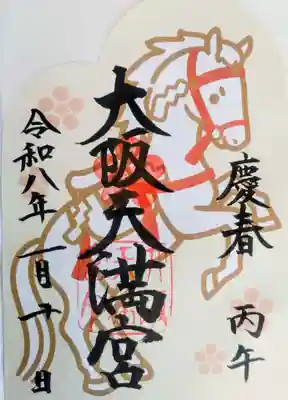 慶春 丙午
大阪天満宮
令和八年一月十日